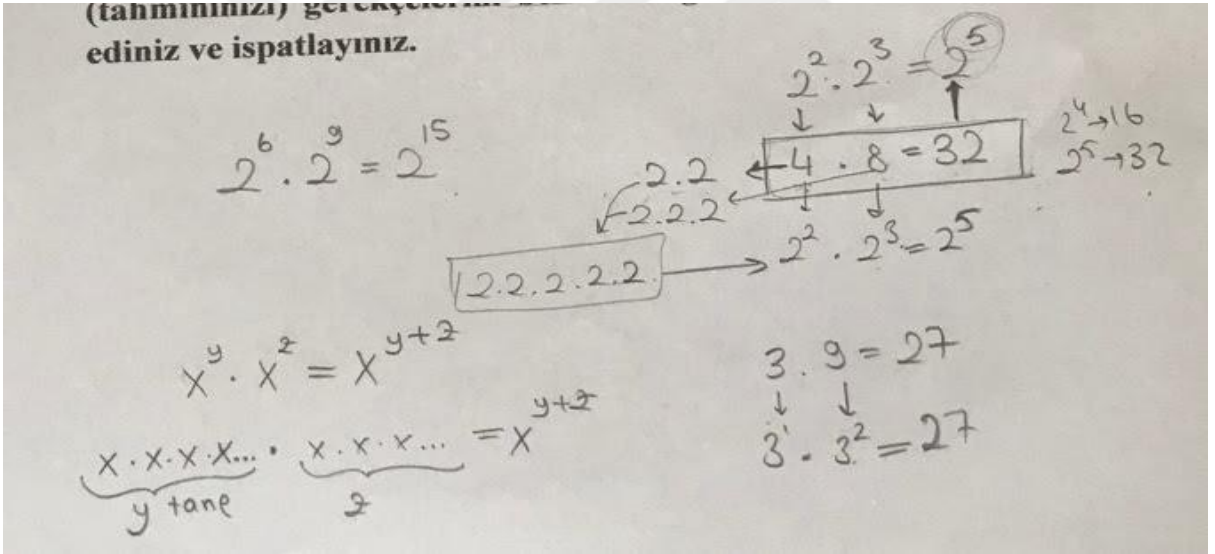 (tahmininizi)
ediniz ve ispatlayınız.
2² . 2³ = 2⁵
2⁶ . 2⁹ = 2¹⁵
4 . 8 = 32
2⁴→16
2⁵→32
2.2
2.2.2
2² . 2³ = 2⁵
2.2.2.2.2
xʸ . xᶻ = xʸ⁺ᶻ
3 . 9 = 27
x.x.x.x... . x.x.x... = xʸ⁺ᶻ
3¹ . 3² = 27
y tane
z